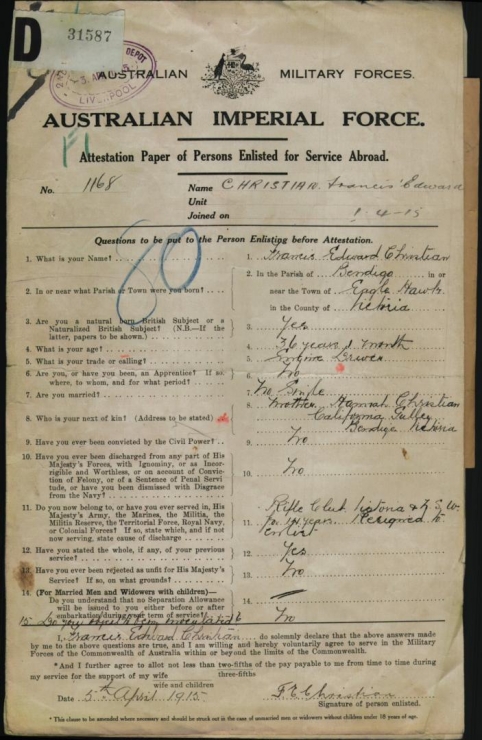 D
31587
DEPOT
LIVERPOOL
AUSTRALIAN MILITARY FORCES.
AUSTRALIAN IMPERIAL FORCE.
Attestation Paper of Persons Enlisted for Service Abroad.
No. 1168
Name CHRISTIAN. Francis Edward
Unit
Joined on 1-4-15
80
Questions to be put to the Person Enlisting before Attestation.
1. What is your Name?
1. Francis Edward Christian
2. In or near what Parish or Town were you born?
2. In the Parish of Bendigo in or
near the Town of Eagle Hawk
in the County of Victoria
3. Are you a natural born British Subject or a
Naturalized British Subject? (N.B.—If the
latter, papers to be shown.)
3. Yes
4. What is your age?
4. 36 years 1 month
5. What is your trade or calling?
5. Engine Driver
6. Are you, or have you been, an Apprentice? If so,
where, to whom, and for what period?
6. No
7. Are you married?
7. No Single
8. Who is your next of kin? (Address to be stated)
8. Mother, Hannah Christian
California Gulley
Bendigo Victoria
9. Have you ever been convicted by the Civil Power?
9. No
10. Have you ever been discharged from any part of His
Majesty's Forces, with Ignominy, or as Incor-
rigible and Worthless, or on account of Convic-
tion of Felony, or of a Sentence of Penal Servi-
tude, or have you been dismissed with Disgrace
from the Navy?
10. No.
11. Do you now belong to, or have you ever served in, His
Majesty's Army, the Marines, the Militia, the
Militia Reserve, the Territorial Force, Royal Navy,
or Colonial Forces? If so, state which, and if not
now serving, state cause of discharge
11. Rifle Club Victoria & N.S.W.
for years. Resigned to
enlist
12. Have you stated the whole, if any, of your previous
service?
12. Yes
13. Have you ever been rejected as unfit for His Majesty's
Service? If so, on what grounds?
13. No
14. (For Married Men and Widowers with children)—
Do you understand that no Separation Allowance
will be issued to you either before or after
embarkation during your term of service?
14.
15 No
I, Francis Edward Christian do solemnly declare that the above answers made
by me to the above questions are true, and I am willing and hereby voluntarily agree to serve in the Military
Forces of the Commonwealth of Australia within or beyond the limits of the Commonwealth.
*And I further agree to allot not less than two-fifths of the pay payable to me from time to time
three-fifths
during my service for the support of my wife
wife and children
Date 5th April 1915
F E Christian
Signature of person enlisted.
* This clause to be amended where necessary and should be struck out in the case of unmarried men or widowers without children under 18 years of age.